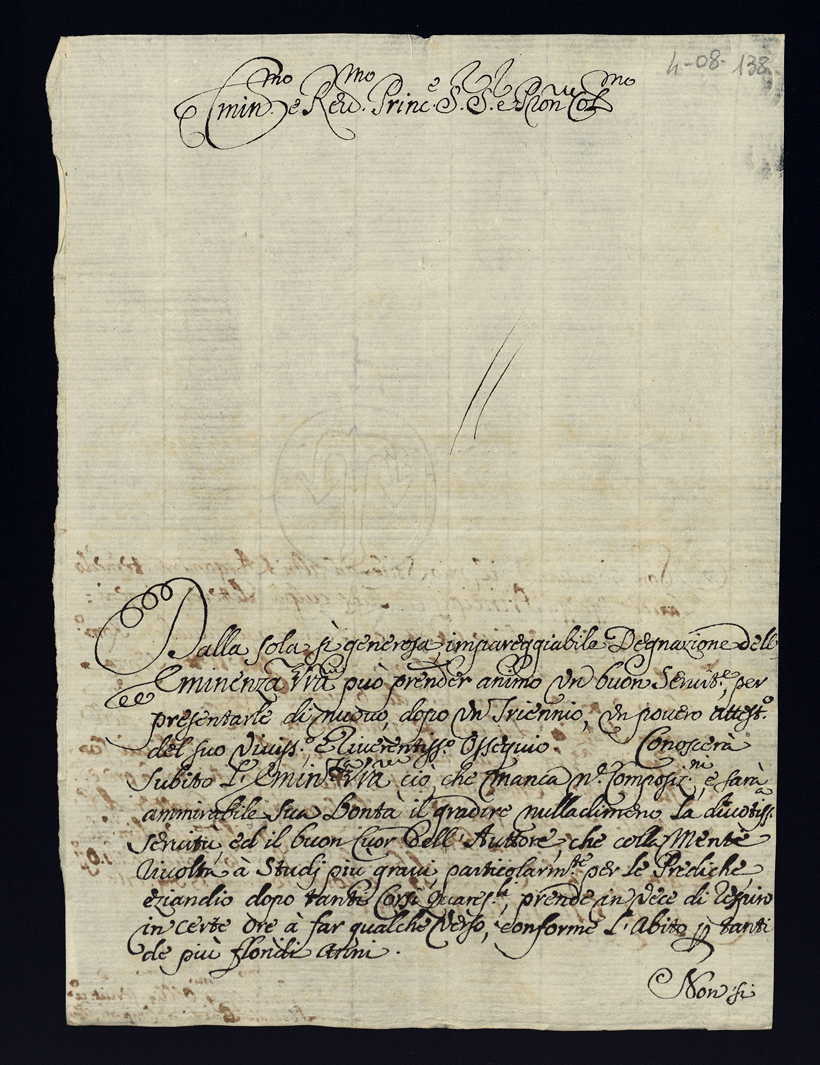 4-08-138
Emin.mo e Rev.mo Princ.e S. S. e Pron Col.mo
Dalla sola sì generosa impareggiabile Degnazione dell'
Eminenza Vra può prender animo un buon Servit.e, per
presentarle di nuovo, dopo un Triennio, un povero attest.o
del suo viviss.o e riverentiss.o Ossequio. Conoscerà
subito l'Emin.za Vra ciò, che manca n.e Composiz.ni, e sarà
ammirabile sua Bontà il gradire nulladimeno la divotiss.a
servitù, ed il buon Cuor dell'Auttore, che colla Mente
rivolta à Studj più gravi, particolarm.te per le Prediche
eziandio dopo tanti Corsi Quares.li, prende in vece di respiro
in certe ore à far qualche Verso, conforme l'Abito in tanti
de più floridi Anni.
Non si